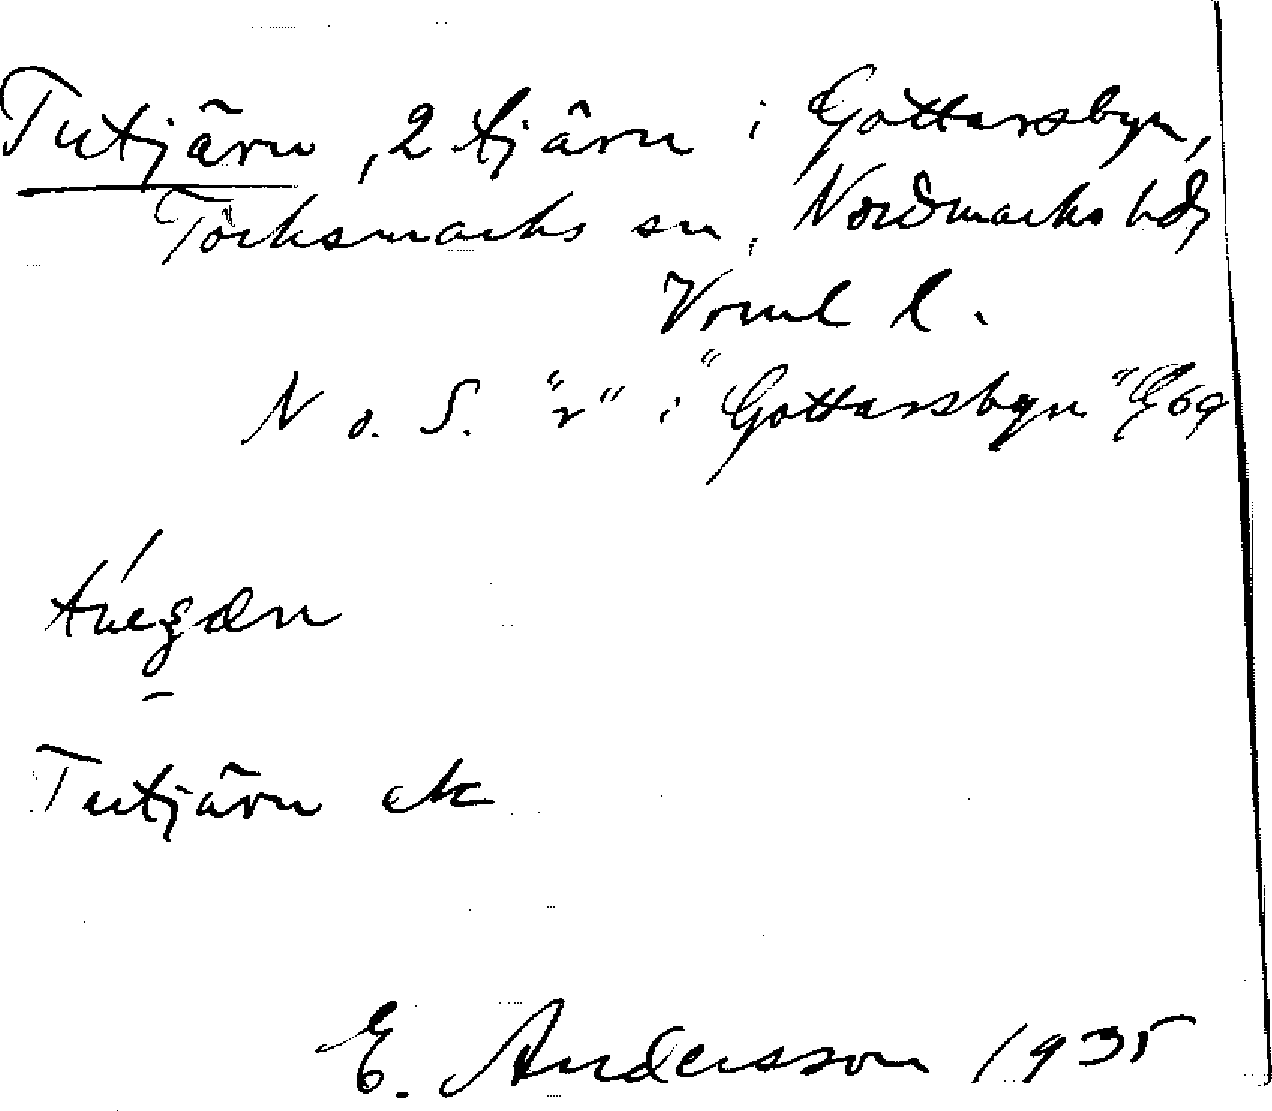 Tutjärn, 2 tjärn i Gottarsbyn,
Töcksmarks sn, Nordmarks hd,
Vrml l.
N o. S. "r" i "Gottarsbyn" Eg 69
Tutjärn ek
E. Andersson 1935